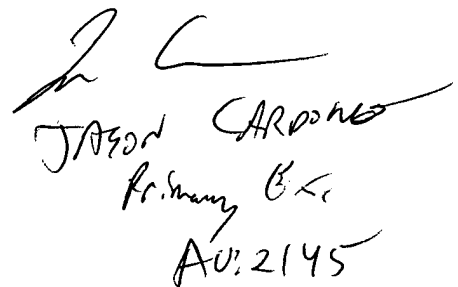 JASON CARDONE
Primary Ex.
AU: 2145